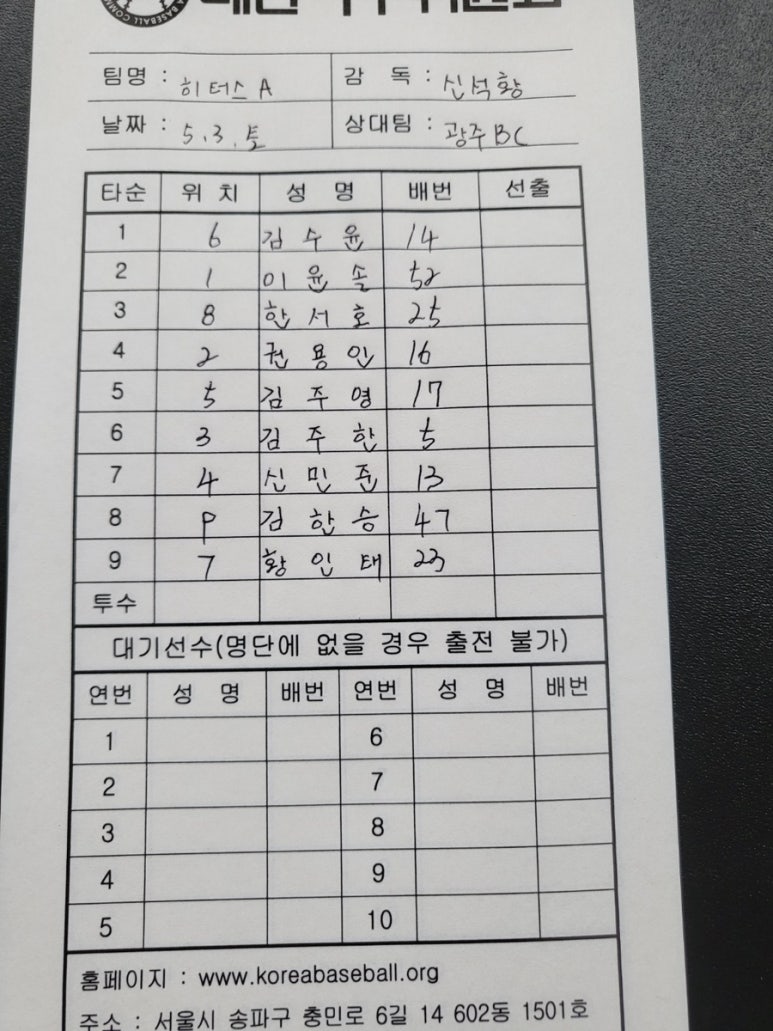 A BASEBALL COMM
팀명 : 히터스 A 감 독 : 신석황
날짜 : 5.3.토 상대팀 : 광주BC
타순 위 치 성 명 배번 선출
1 6 김수윤 14
2 1 이윤솔 52
3 8 한서호 25
4 2 권용인 16
5 5 김주영 17
6 3 김주한 5
7 4 신민준 13
8 P 김한승 47
9 7 황인태 23
투수
대기선수(명단에 없을 경우 출전 불가)
연번 성 명 배번 연번 성 명 배번
1 6
2 7
3 8
4 9
5 10
홈페이지 : www.koreabaseball.org
주소 : 서울시 송파구 충민로 6길 14 602동 1501호